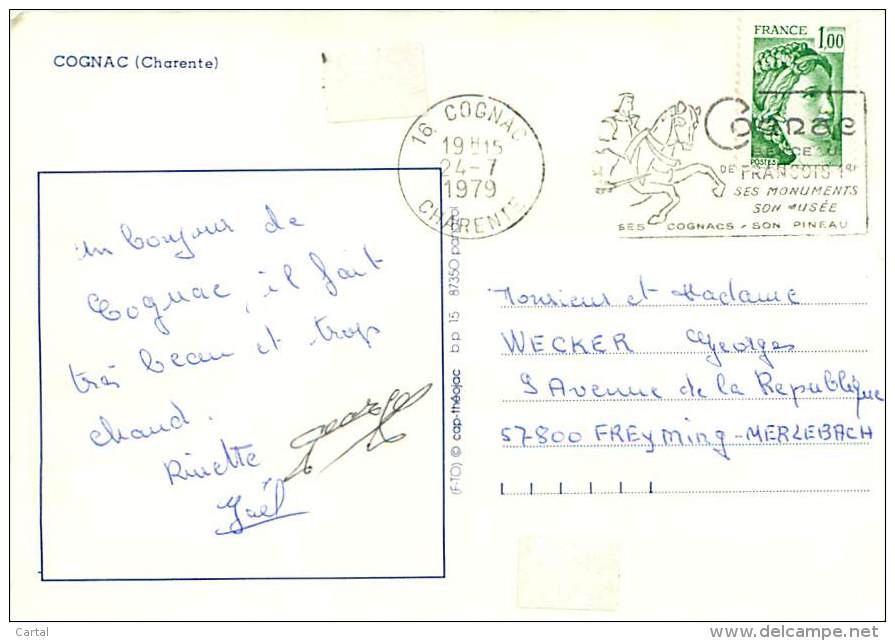 COGNAC (Charente)
FRANCE 1,00
POSTES
16 COGNAC
19 H 15
24-7
1979
CHARENTE
Cognac
BERCEAU
DE FRANCOIS 1er
SES MONUMENTS
SON MUSÉE
SES COGNACS - SON PINEAU
un bonjour de
Cognac, il fait
très beau et trop
chaud.
Rinette
Georges
Gaël
(F-TO) © cap-théojac b.p. 15 87350 panazol
Monsieur et Madame
WECKER Georges
9 Avenue de la République
57-800 FREyMing-MERLEBACH
Cartal
delcampe.net